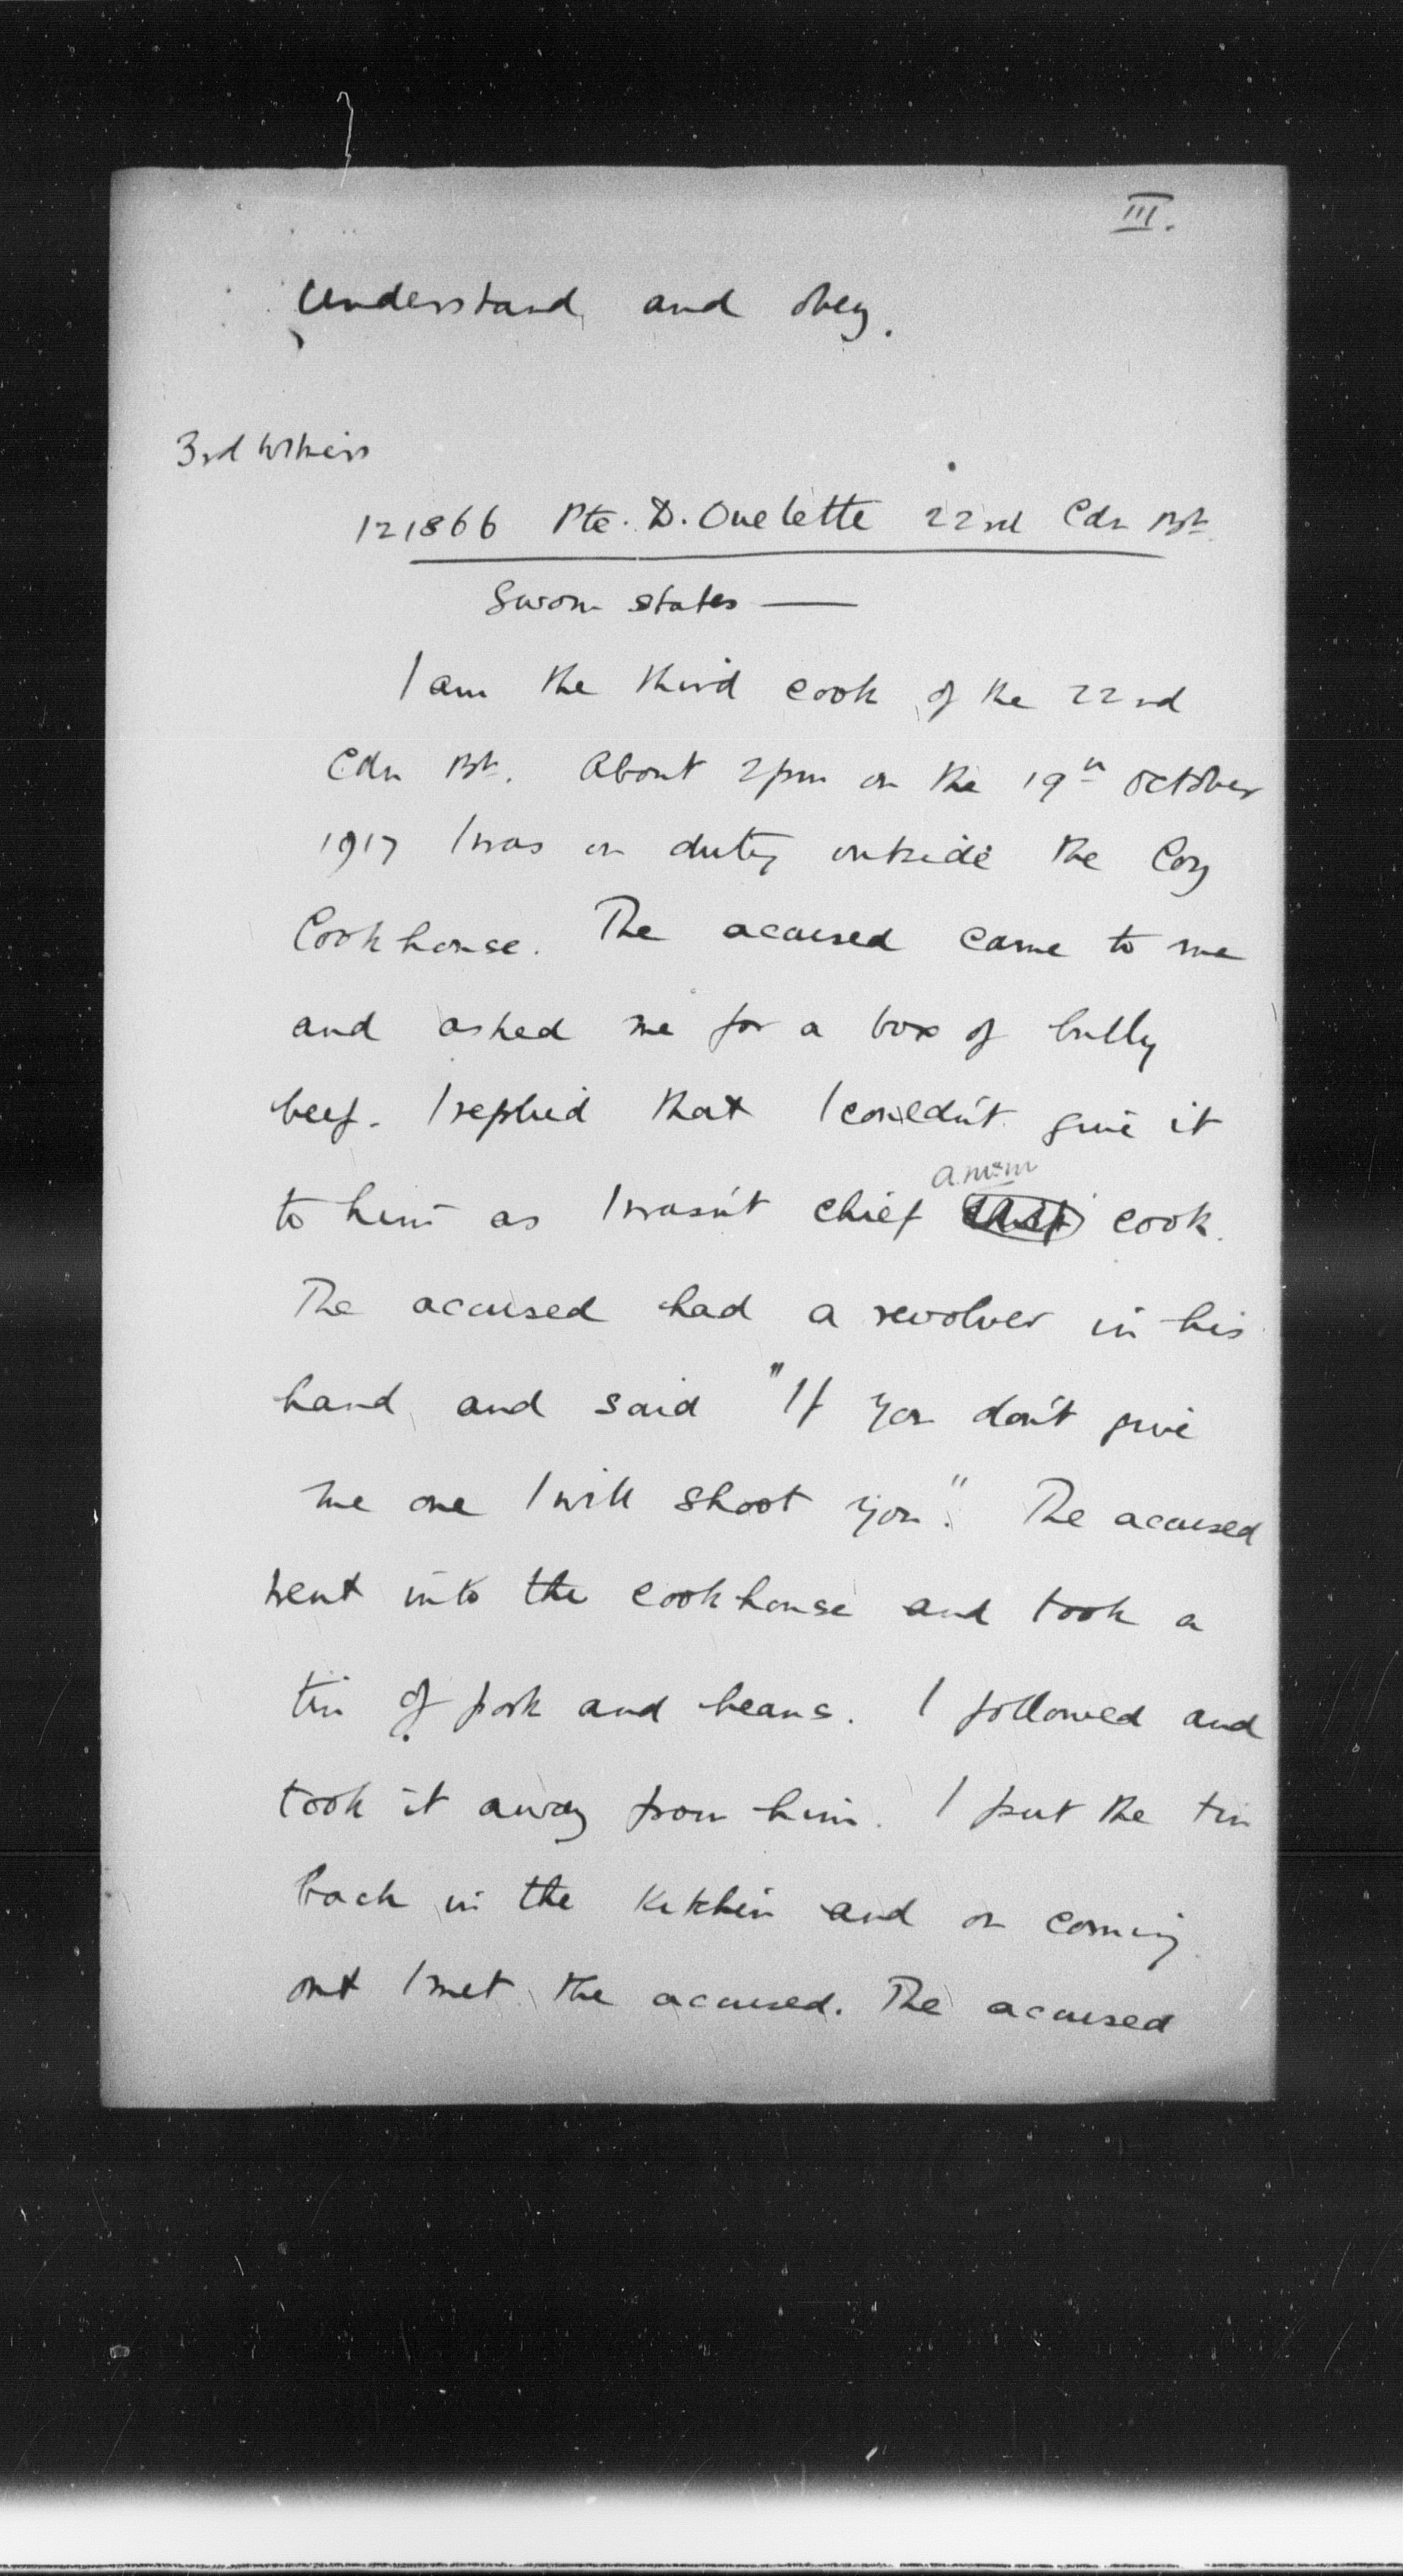 III.
Understand and obey.
3rd Witness
121866 Pte. D. Ouelette 22nd Cdn Bn.
Sworn states —
I am the third cook of the 22nd
Cdn Bn. About 2pm on the 19th October
1917 I was on duty outside the Coy
Cookhouse. The accused came to me
and asked me for a box of bully
beef. I replied that I couldn't give it
to him as I wasn't chief cook.
The accused had a revolver in his
hand and said "If you don't give
me one I will shoot you." The accused
went into the cookhouse and took a
tin of pork and beans. I followed and
took it away from him. I put the tin
back in the kitchen and on coming
out I met the accused. The accused